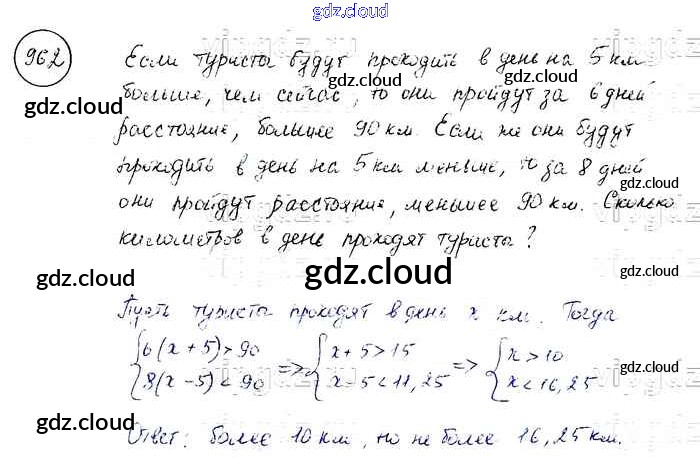 gdz.cloud
962
Если туристы будут проходить в день на 5 км
больше, чем сейчас, то они пройдут за 6 дней
расстояние, большее 90 км. Если же они будут
проходить в день на 5 км меньше, то за 8 дней
они пройдут расстояние, меньшее 90 км. Сколько
километров в день проходят туристы?
gdz.cloud
gdz.cloud
gdz.cloud
gdz.cloud
gdz.cloud
gdz.cloud
gdz.cloud
Пусть туристы проходят в день x км. Тогда
{6(x + 5) > 90 => {x + 5 > 15 => {x > 10
{8(x - 5) < 90 {x - 5 < 11,25 {x < 16,25
Ответ: более 10 км, но не более 16,25 км.
gdz.cloud
gdz.cloud
gdz.cloud